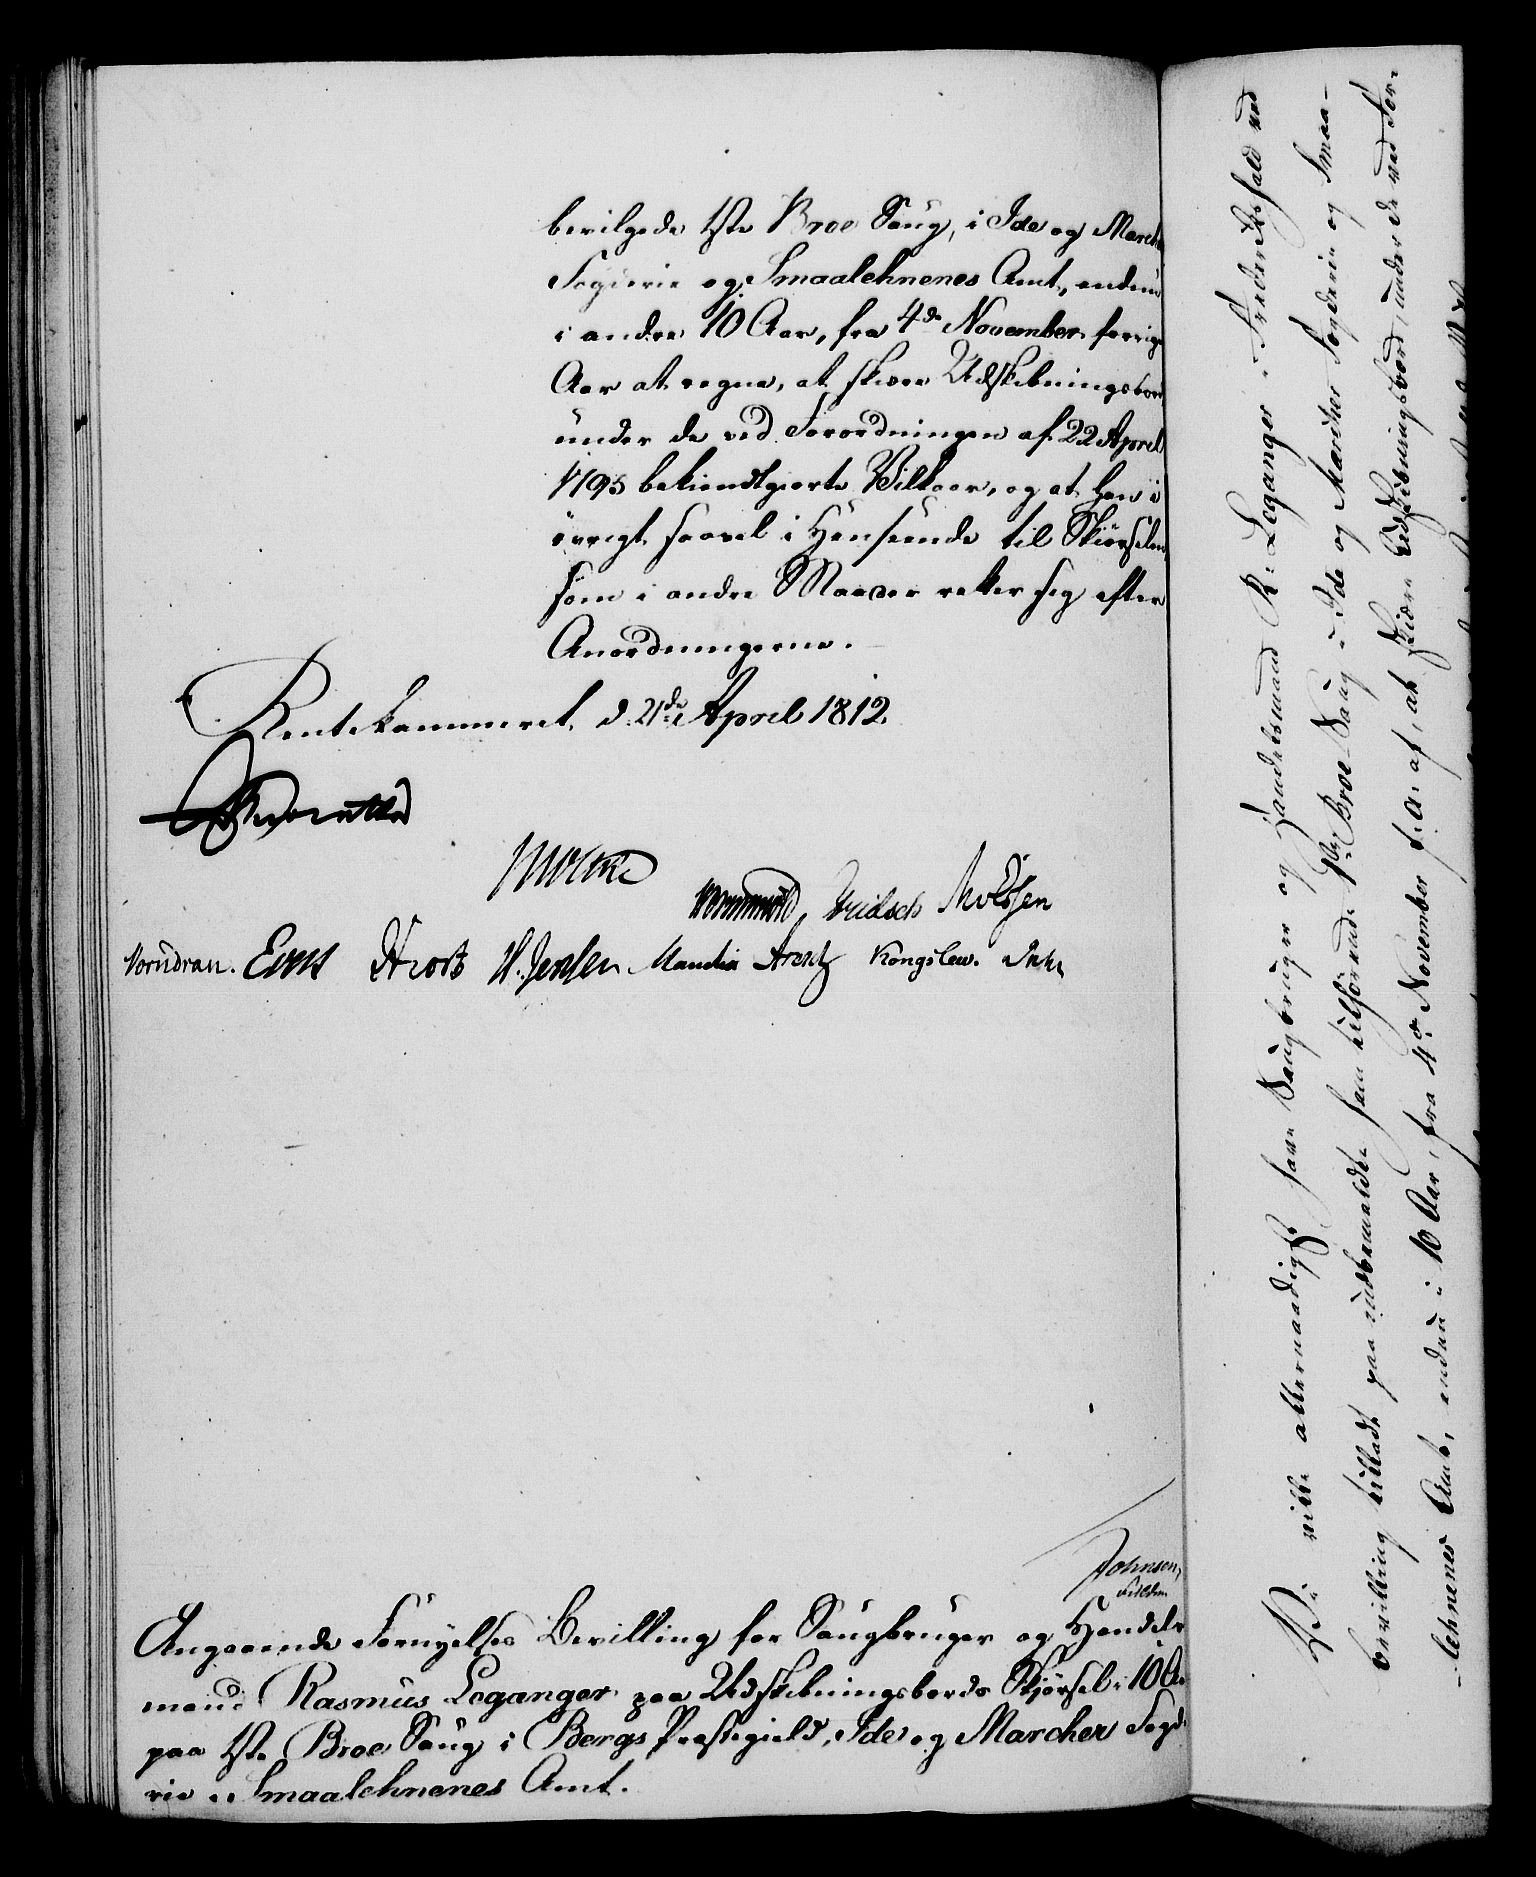 bevilgede 1ste Broe Saug, i Ide og March
Fogderie og Smaalehnenes Amt, endnu
i andre 10 Aar, fra 4de November forrige
Aar at regne, at skiære Udskibningsbord
under de ved Forordningen af 22 April
1795 bekiendtgiorte Vilkaar, og at han i
øvrigt saavel i Henseende til Skiørselen,
som i andre Maader retter sig efter
Anordningerne.
Rentekammeret, d. 21de April 1812.
Moltke
Wormskiold Knudsen
Vorndran. H. Jensen Arentz Kongslew.
Johnsen,
Angaaende Fornyelses Bevilling for Saugbruger og Handels
mand Rasmus Leganger paa Udskibningsbords Skjørsel i 10 Aar
paa 1ste Broe Saug i Bergs Præstegield, Ide og Marcher Fogd
rie i Smaalehnenes Amt.
Vi ville allernaadigst have Saugbruger og Handelsmand R: Leganger i Friderikshald ved
bevilling tilladt paa den ham tilhørende 1ste Broe-Saug i Ide og Marcher Fogderie og Smaa-
lehnenes Amt, endnu i 10 Aar, fra 4de November f. A. af, at skiære Udskibningsbord, under de ved For-